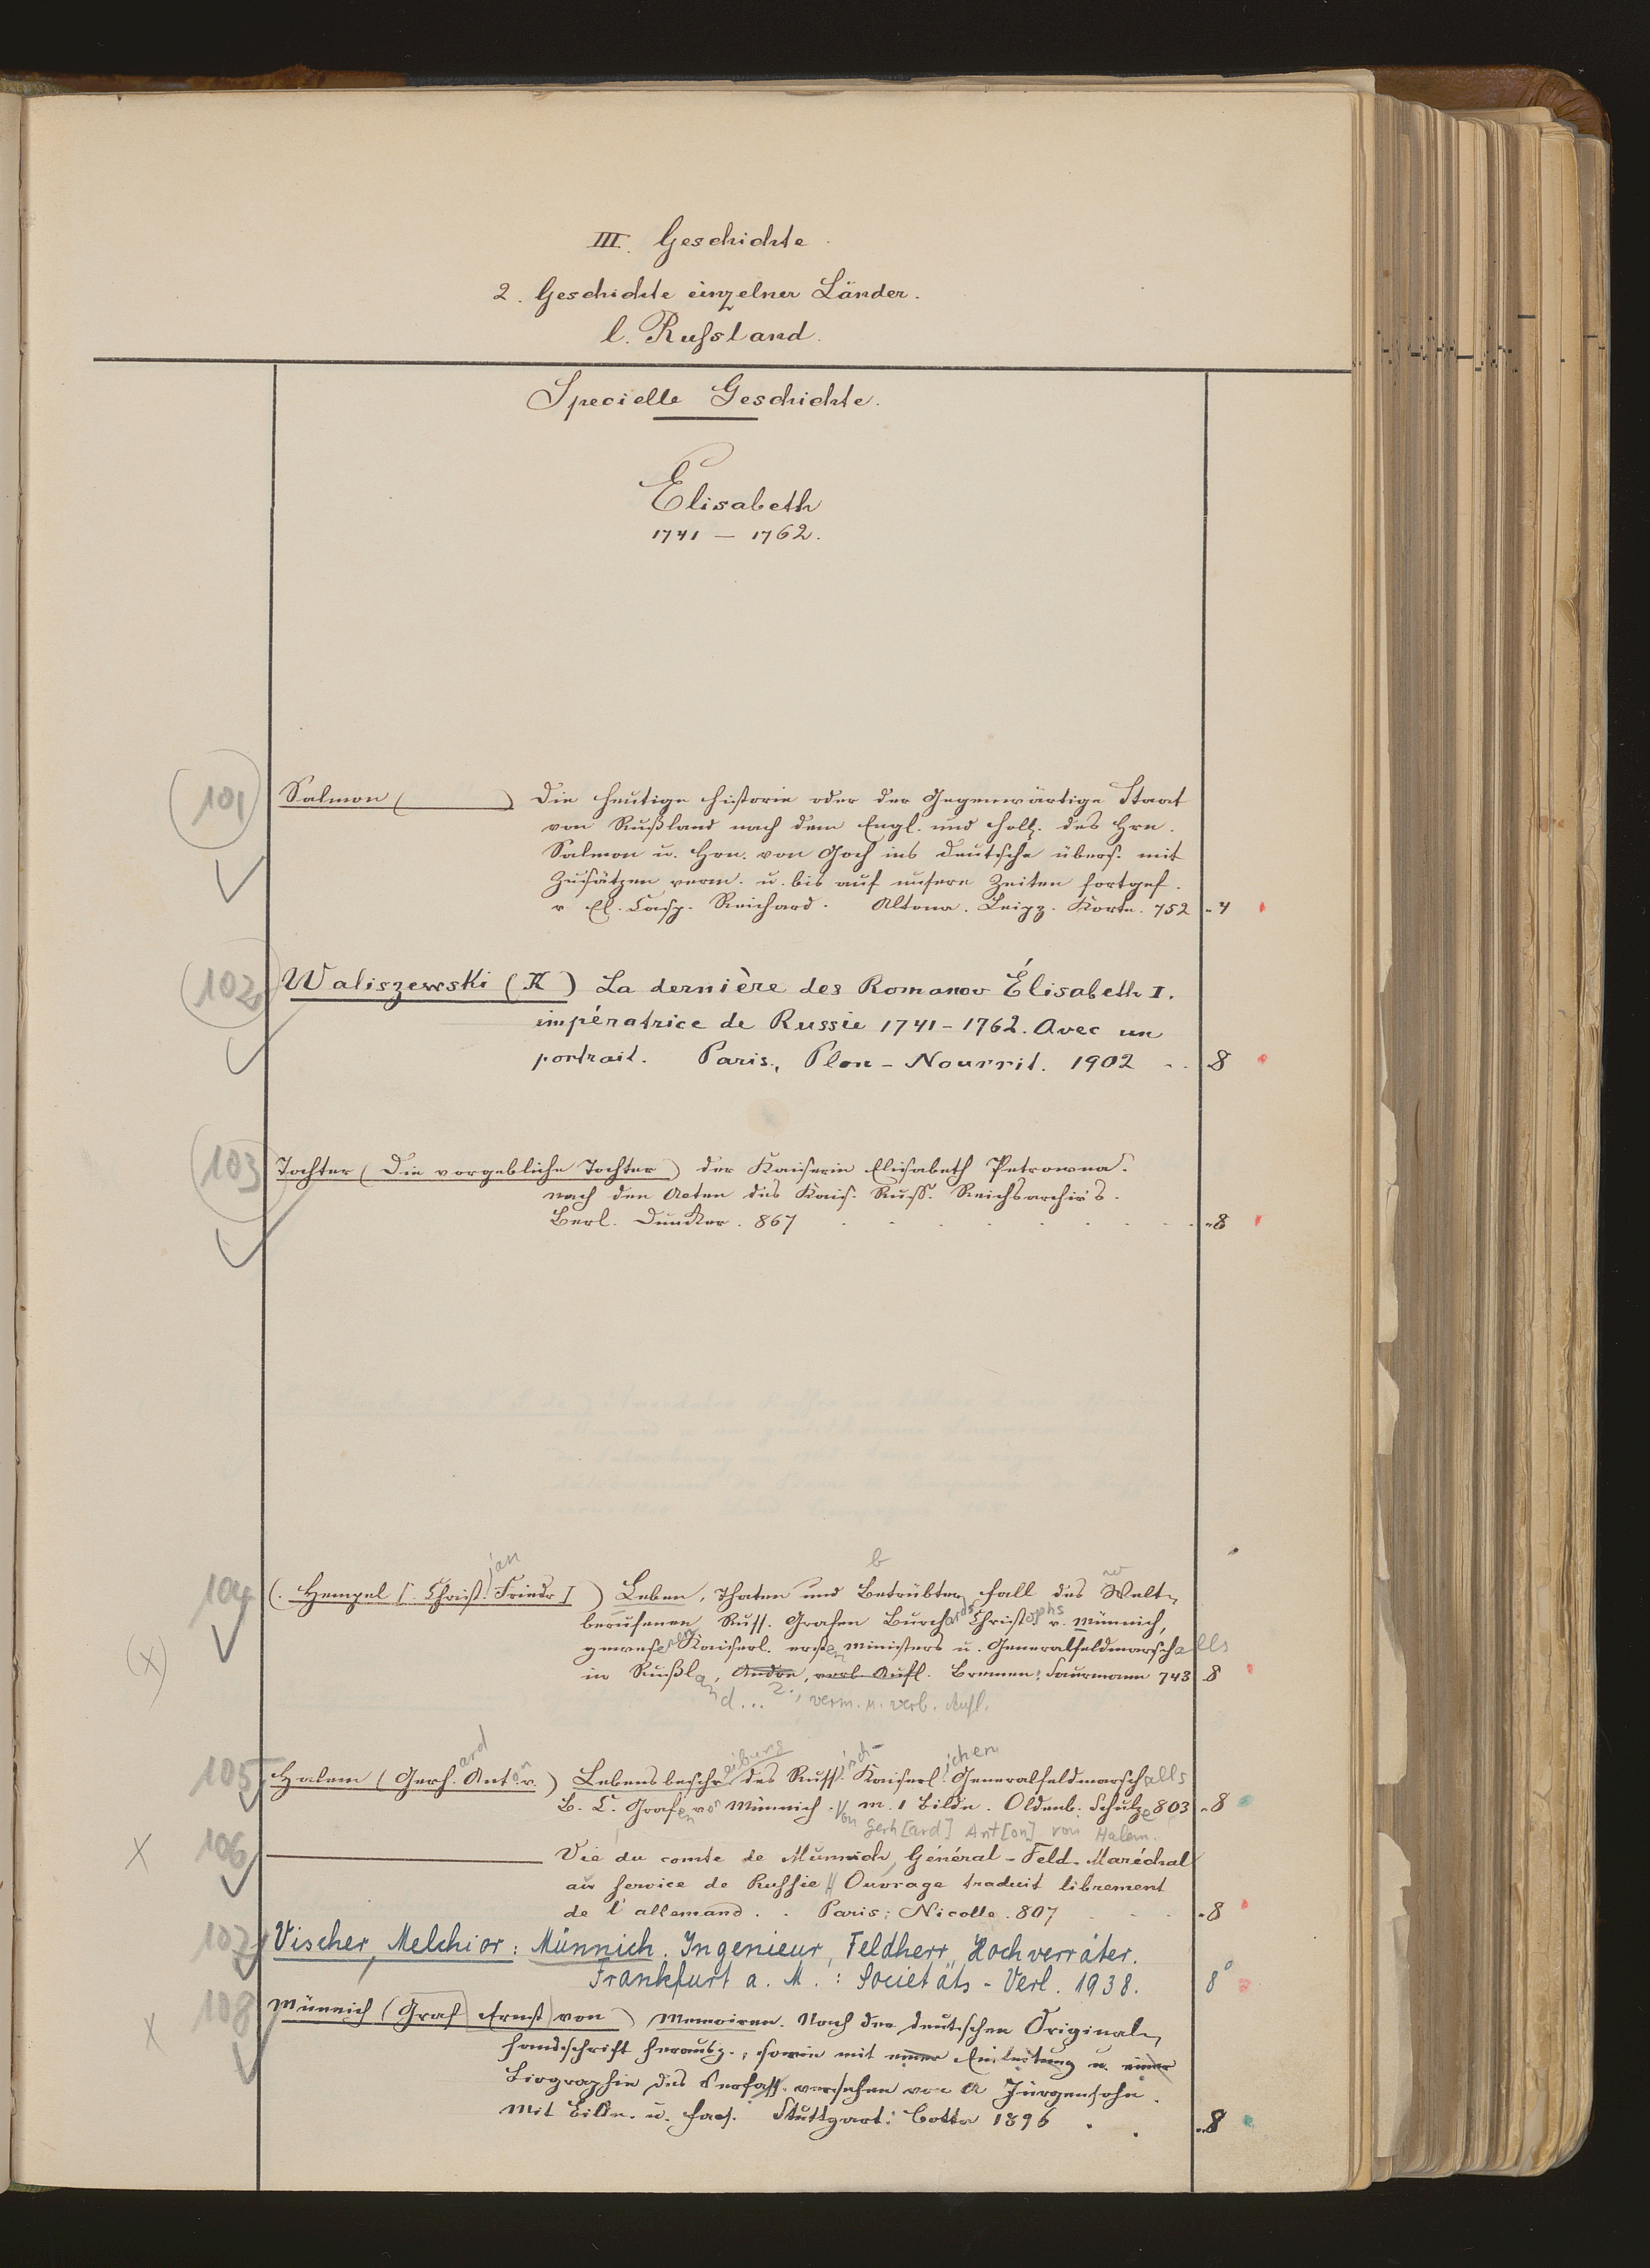 III. Geschichte.
2. Geschichte einzelner Länder.
l. Russland.
Specielle Geschichte.
Elisabeth
1741 — 1762.
101 Salmon ( ) Die heutige Historie oder der Gegenwärtige Staat
von Rußland nach dem Engl. und Holl. des Hrn.
Salmon u. Hrn. von Goch ins deutsche übers. mit
Zusätzen verm. u. bis auf unsere Zeiten fortges.
v El. Casp. Reichard. Altona. Leipz. Korte. 752 „ 4
102 Waliszewski (K) La dernière des Romanov Élisabeth I.
impératrice de Russie 1741-1762. Avec un
portrait. Paris., Plon-Nourrit. 1902 . . 8
103 Tochter (Die vorgebliche Tochter) der Kaiserin Elisabeth Petrowna.
nach den Acten des Kais. Russ. Reichsarchivs.
Berl. Duncker. 867 . . . . . . . . „8
104 (. Hempel [. Christ.ian Friedr ] ) Leben, Thaten und Betrübter Fall des Welt-
berufenen Russ. Grafen Burchards Christophs v. Münnich,
(x) gewesenen Kaiserl. ersten Ministers u. Generalfeldmarschalls
in Rußland ... Andre, verb. Aufl. Bremen: Saurmann 743 8
2., verm. u. verb. Aufl.
105 Halem (Gerh.ard Anton v.) Lebensbeschreibung des Russisch-Kaiserlichen Generalfeldmarschalls
B. C. Grafen von Münnich. m. 1 Bildn. Oldenb. Schulze 803 „8
Von Gerh[ard] Ant[on] von Halem.
X 106 ——— Vie du comte de Munnich, Général-Feld-Maréchal
au service de Russie // Ouvrage traduit librement
de l'allemand. . Paris: Nicolle. 807 . . . „8
107 Vischer, Melchior: Münnich. Ingenieur, Feldherr, Hochverräter.
Frankfurt a. M.: Societäts-Verl. 1938. 8°
X 108 Münnich (Graf Ernst von) Memoiren. Nach der deutschen Original-
handschrift herausg., sowie mit einer Einleitung u. einer
Biographie des Verfass. versehen von A Jürgensohn.
Mit Bildn. u. Facs. Stuttgart: Cotta 1896 . . „8